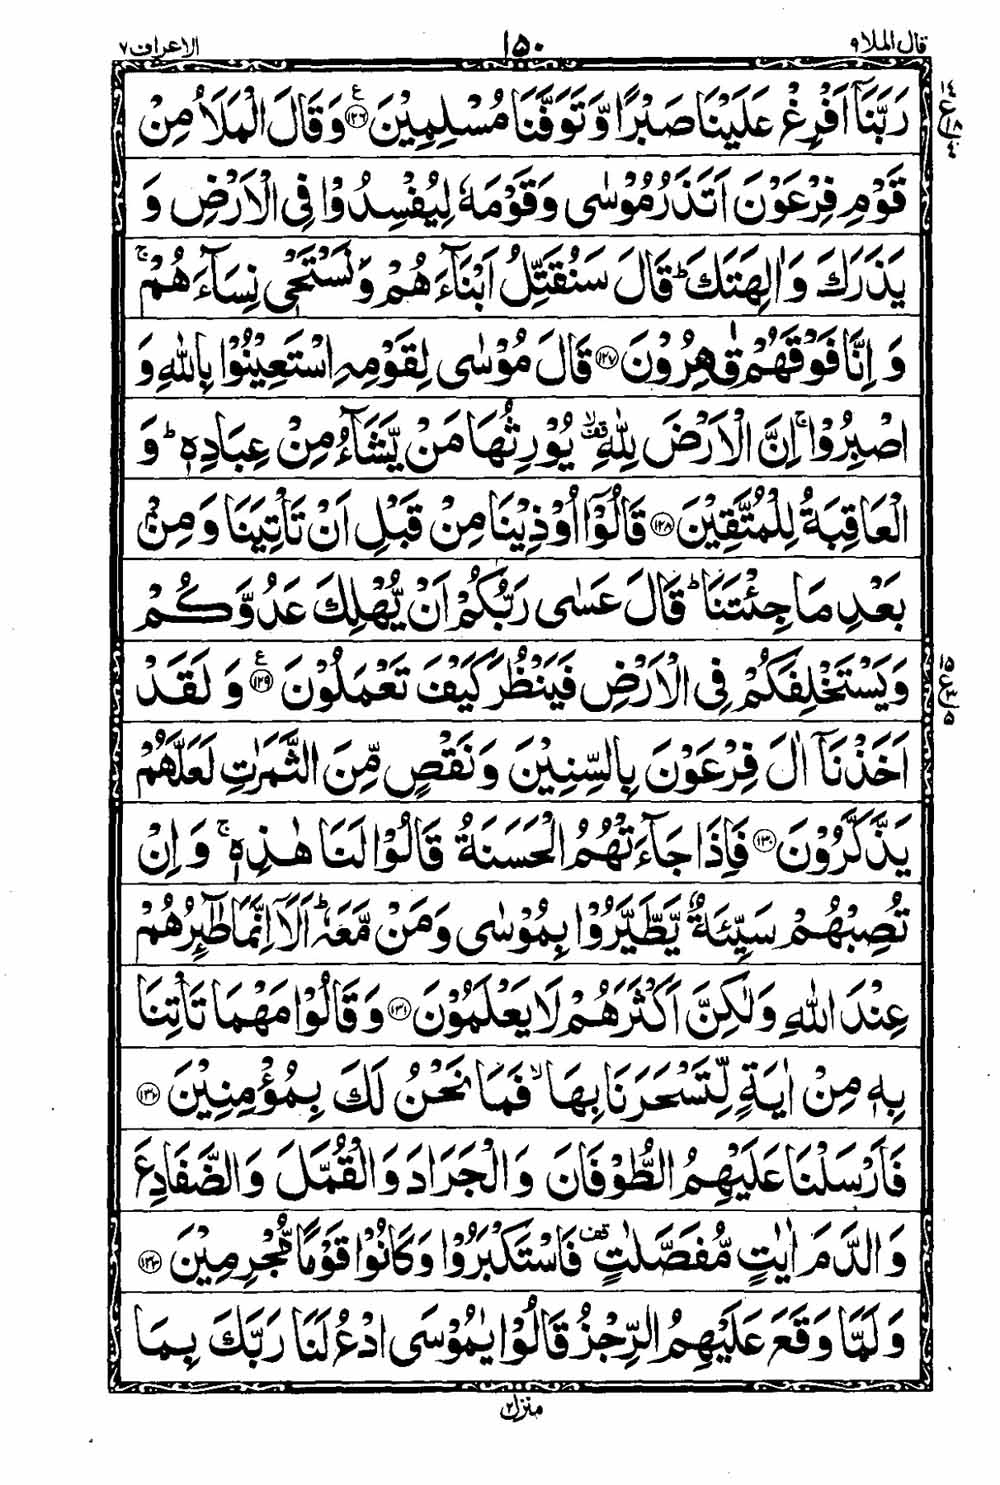 قال الملا ٩ ١٥٠ الاعراف ٧
رَبَّنَاۤ اَفْرِغْ عَلَیْنَا صَبْرًا وَّ تَوَفَّنَا مُسْلِمِیْنَ ﴿۱۲۶﴾ع وَ قَالَ الْمَلَاُ مِنْ
قَوْمِ فِرْعَوْنَ اَتَذَرُ مُوْسٰی وَ قَوْمَهٗ لِیُفْسِدُوْا فِی الْاَرْضِ وَ
یَذَرَكَ وَ اٰلِهَتَكَ ؕ قَالَ سَنُقَتِّلُ اَبْنَآءَهُمْ وَ نَسْتَحْیٖ نِسَآءَهُمْ ۚ
وَ اِنَّا فَوْقَهُمْ قٰهِرُوْنَ ﴿۱۲۷﴾ قَالَ مُوْسٰی لِقَوْمِهِ اسْتَعِیْنُوْا بِاللّٰهِ وَ
اصْبِرُوْا ۚ اِنَّ الْاَرْضَ لِلّٰهِ ۙ۫ یُوْرِثُهَا مَنْ یَّشَآءُ مِنْ عِبَادِهٖ ؕ وَ
الْعَاقِبَةُ لِلْمُتَّقِیْنَ ﴿۱۲۸﴾ قَالُوْۤا اُوْذِیْنَا مِنْ قَبْلِ اَنْ تَاْتِیَنَا وَ مِنْۢ
بَعْدِ مَا جِئْتَنَا ؕ قَالَ عَسٰی رَبُّكُمْ اَنْ یُّهْلِكَ عَدُوَّكُمْ
وَ یَسْتَخْلِفَكُمْ فِی الْاَرْضِ فَیَنْظُرَ كَیْفَ تَعْمَلُوْنَ ﴿۱۲۹﴾ع وَ لَقَدْ
اَخَذْنَاۤ اٰلَ فِرْعَوْنَ بِالسِّنِیْنَ وَ نَقْصٍ مِّنَ الثَّمَرٰتِ لَعَلَّهُمْ
یَذَّكَّرُوْنَ ﴿۱۳۰﴾ فَاِذَا جَآءَتْهُمُ الْحَسَنَةُ قَالُوْا لَنَا هٰذِهٖ ۚ وَ اِنْ
تُصِبْهُمْ سَیِّئَةٌ یَّطَّیَّرُوْا بِمُوْسٰی وَ مَنْ مَّعَهٗ ؕ اَلَاۤ اِنَّمَا طٰٓىِٕرُهُمْ
عِنْدَ اللّٰهِ وَ لٰكِنَّ اَكْثَرَهُمْ لَا یَعْلَمُوْنَ ﴿۱۳۱﴾ وَ قَالُوْا مَهْمَا تَاْتِنَا
بِهٖ مِنْ اٰیَةٍ لِّتَسْحَرَنَا بِهَا ۙ فَمَا نَحْنُ لَكَ بِمُؤْمِنِیْنَ ﴿۱۳۲﴾
فَاَرْسَلْنَا عَلَیْهِمُ الطُّوْفَانَ وَ الْجَرَادَ وَ الْقُمَّلَ وَ الضَّفَادِعَ
وَ الدَّمَ اٰیٰتٍ مُّفَصَّلٰتٍ ۫ فَاسْتَكْبَرُوْا وَ كَانُوْا قَوْمًا مُّجْرِمِیْنَ ﴿۱۳۳﴾
وَ لَمَّا وَقَعَ عَلَیْهِمُ الرِّجْزُ قَالُوْا یٰمُوْسَی ادْعُ لَنَا رَبَّكَ بِمَا
منزل ٢